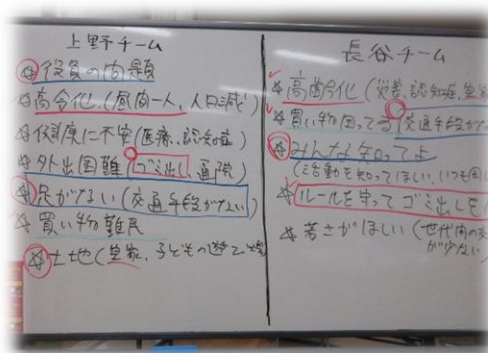 上野チーム
☆役員の問題
☆高令化(昼間一人、人口減)
☆健康に不安(医療、認知症)
☆外出困難(ゴミ出し、通院)
☆足がない(交通手段がない)
☆買い物難民
☆土地(空家、子どもの遊
長谷チーム
☆高齢化(災害、認知症、空家
☆買い物困ってる(交通手段が
☆みんな知ってよ
(活動を知ってほしい、いつも同じ
☆ルールを守ってゴミ出しを
☆若さがほしい(世代間の交
が少ない)